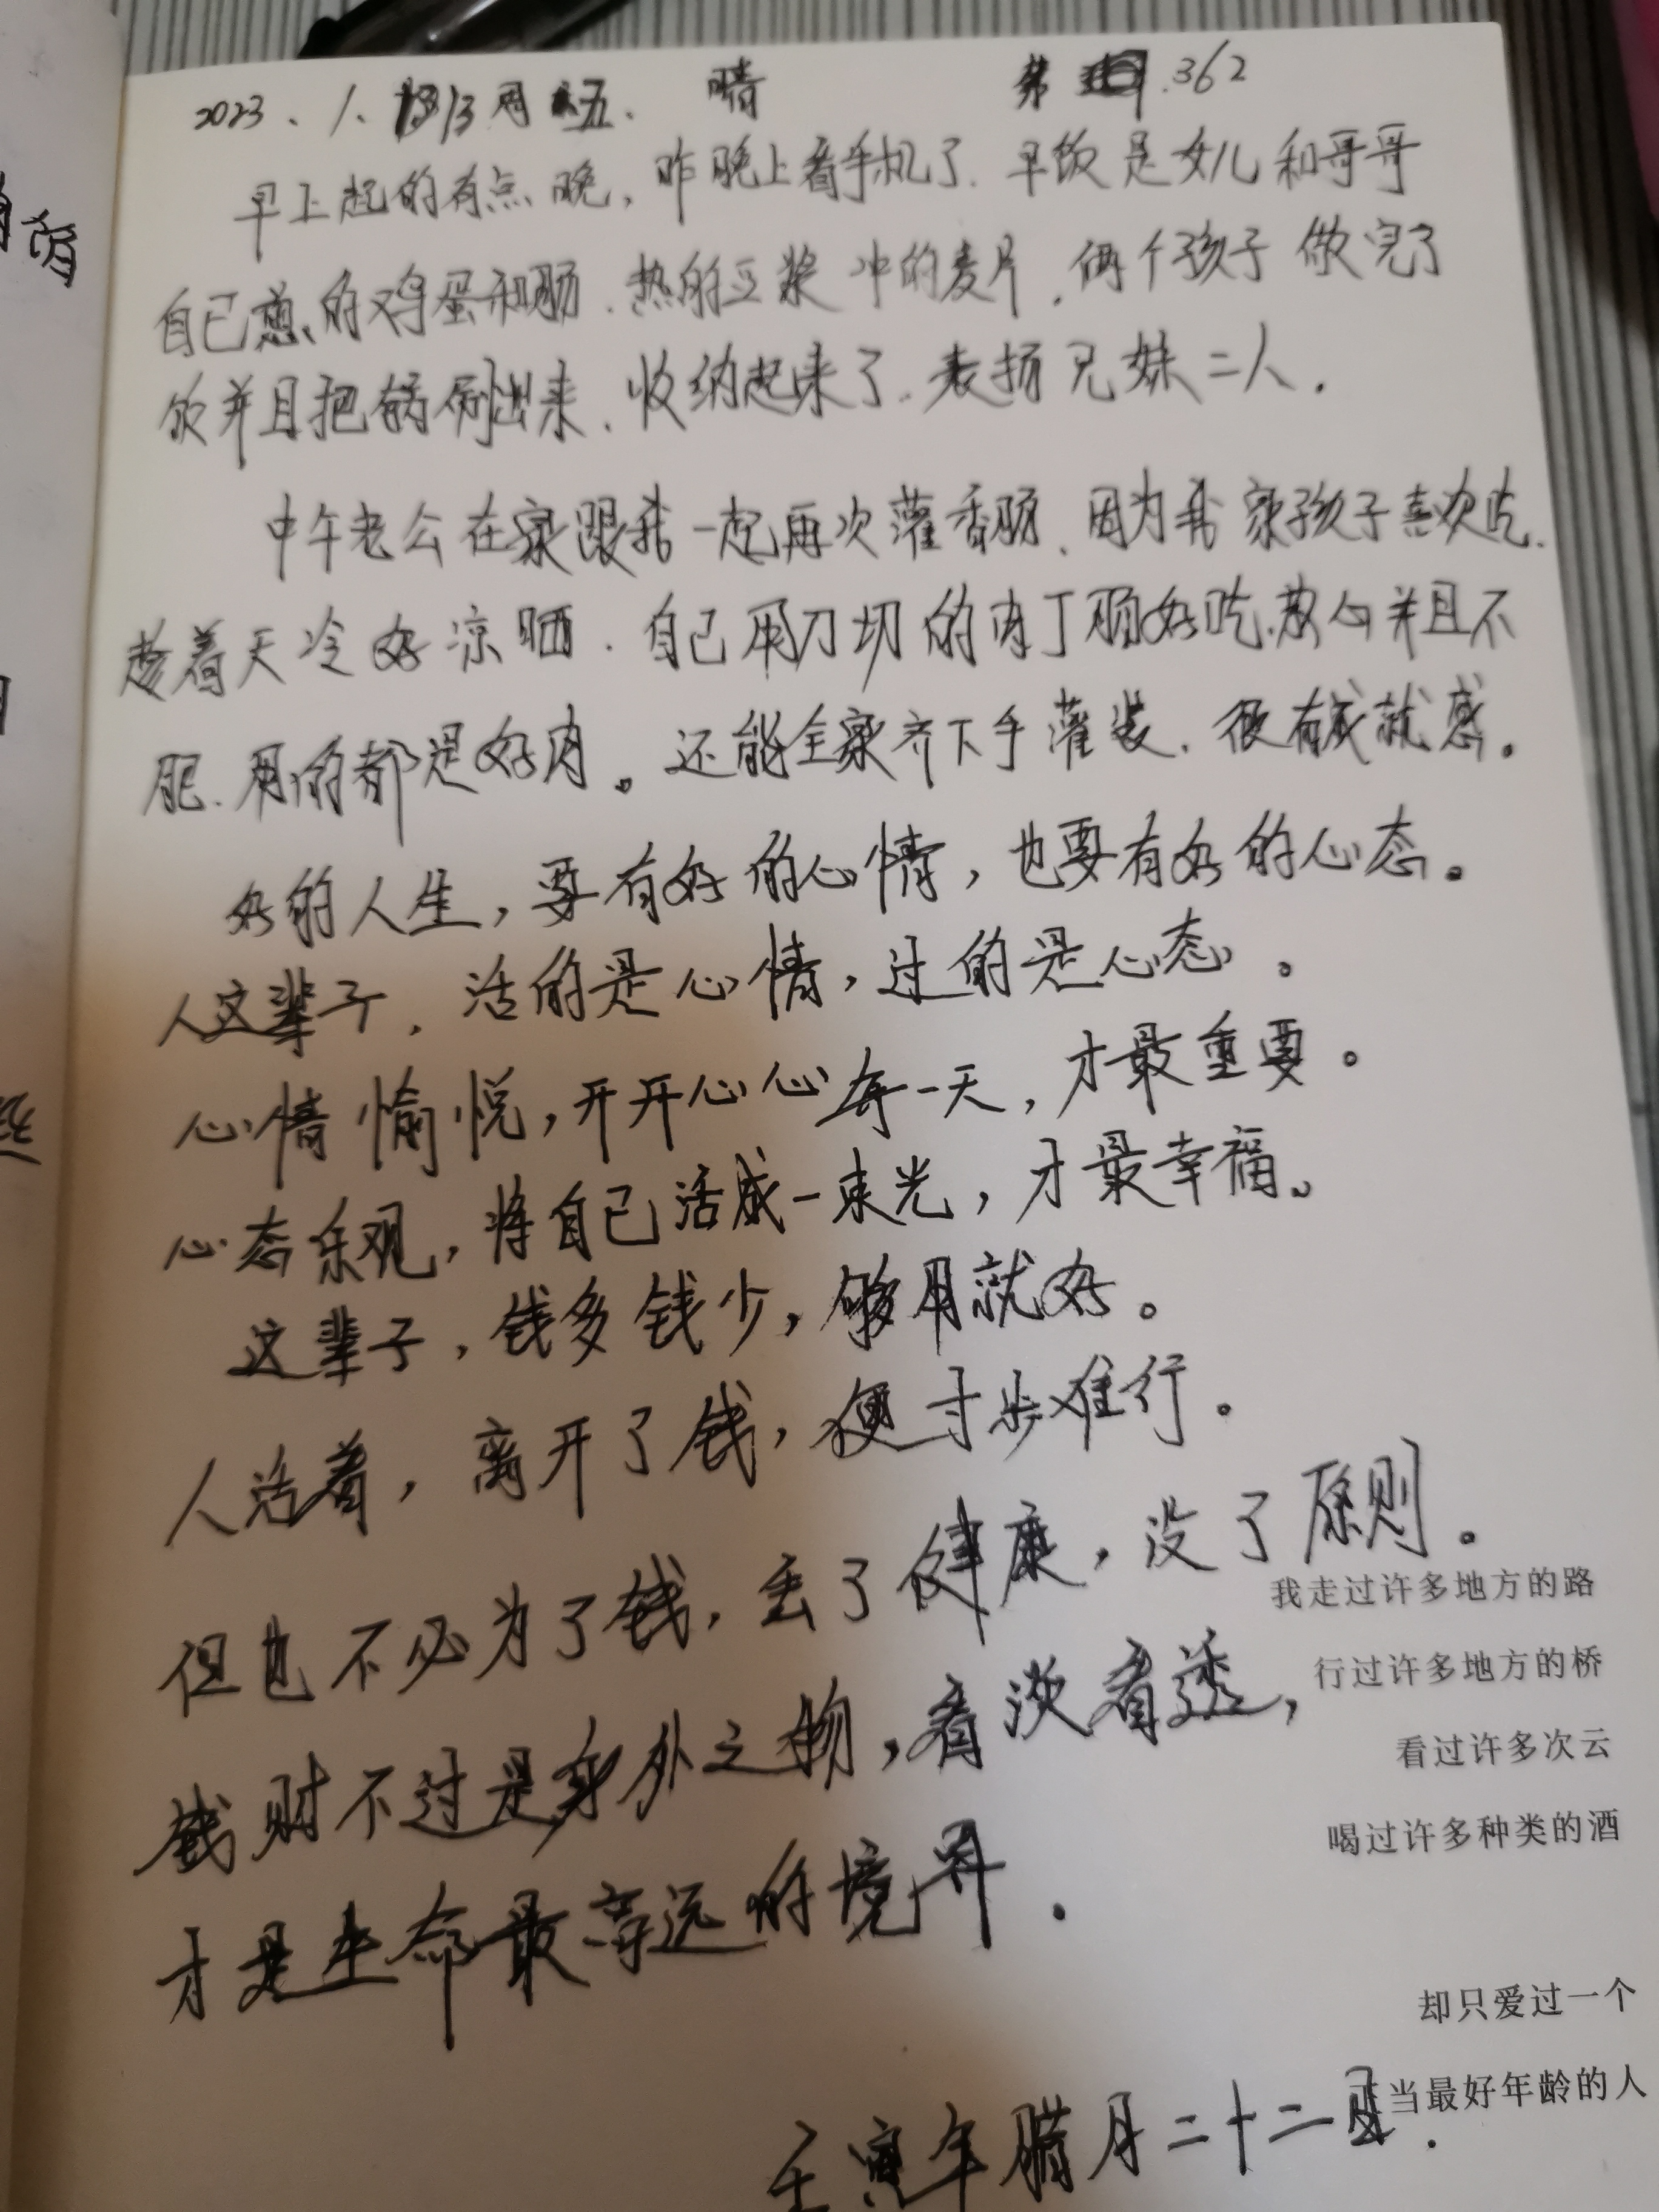 2023、1、13周五. 晴 第 362
早上起的有点晚，昨晚上看手机了.早饭是女儿和哥哥
自己煎的鸡蛋和肠.热的豆浆冲的麦片.俩个孩子做完了
饭并且把锅刷出来.收纳起来了.表扬兄妹二人.
中午老公在家跟我一起再次灌香肠.因为我家孩子喜欢吃.
趁着天冷好凉晒.自己用刀切的肉丁肠好吃.放心并且不
肥.用的都是好肉。还能全家齐下手灌装.很有成就感。
好的人生，要有好的心情，也要有好的心态。
人这辈子.活的是心情，过的是心态。
心情愉悦，开开心心每一天，才最重要。
心态乐观，将自己活成一束光，才最幸福。
这辈子，钱多钱少，够用就好。
人活着，离开了钱，便寸步难行。
但也不必为了钱，丢了健康，没了原则。
我走过许多地方的路
行过许多地方的桥
钱财不过是身外之物，看淡看透，
看过许多次云
喝过许多种类的酒
才是生命最高远的境界.
却只爱过一个
当最好年龄的人
壬寅年腊月二十二日.